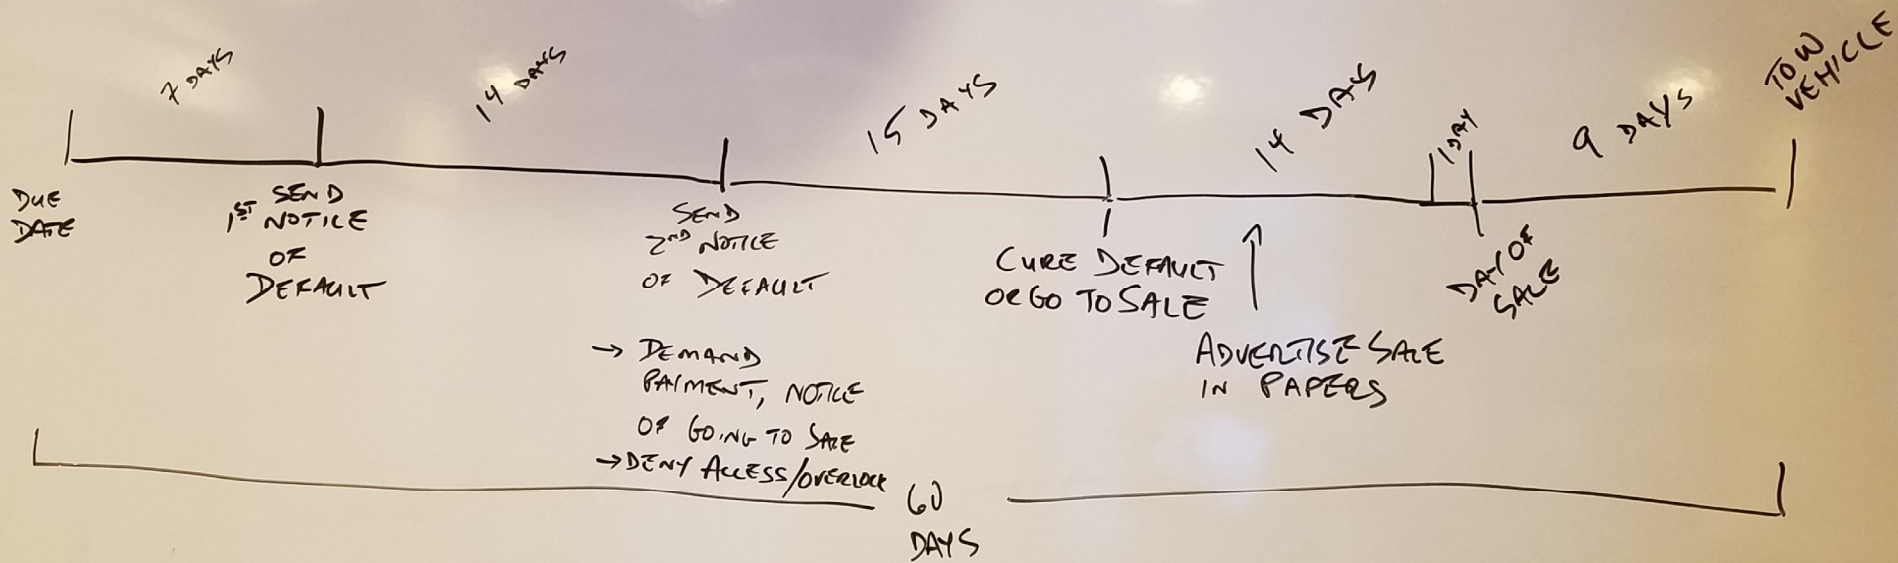 7 DAYS
14 DAYS
15 DAYS
14 DAYS
1 DAY
9 DAYS
TOW
VEHICLE
DUE
DATE
SEND
1ST NOTICE
OF
DEFAULT
SEND
2ND NOTICE
OF DEFAULT
→ DEMAND
PAYMENT, NOTICE
OF GOING TO SALE
→ DENY ACCESS/OVERLOCK
CURE DEFAULT
OR GO TO SALE
ADVERTISE SALE
IN PAPERS
DAY OF
SALE
60
DAYS